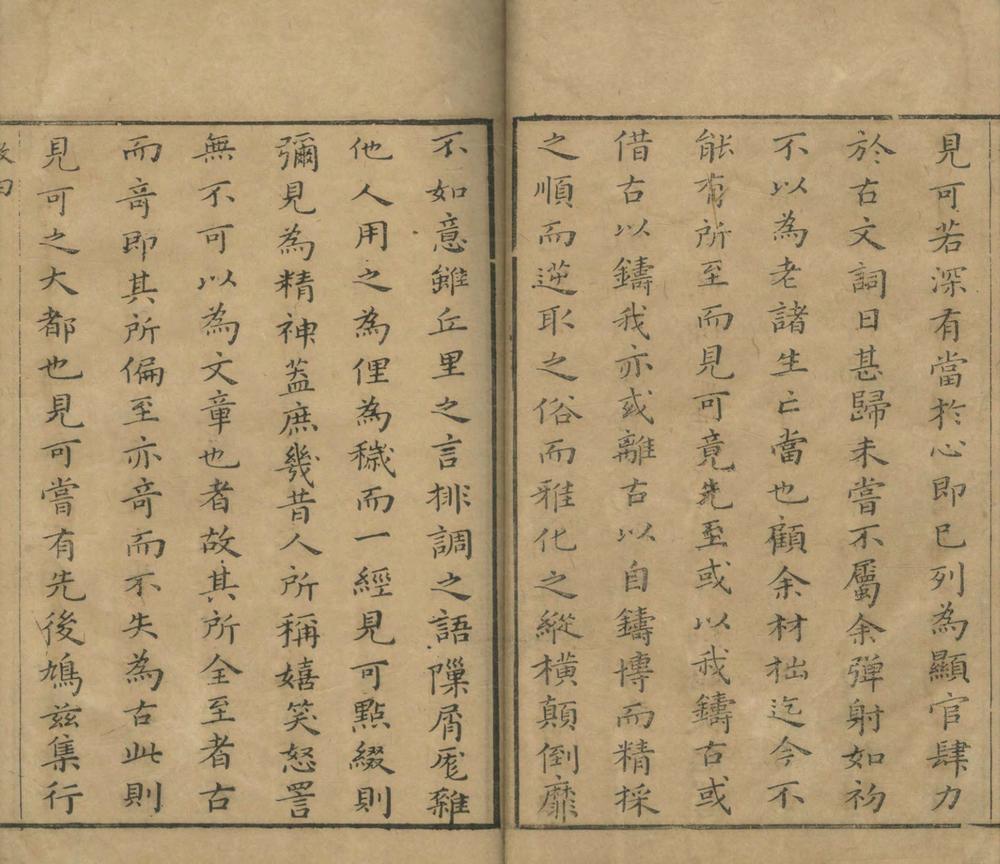 見可若深有當於心即已列為顯官肆力
於古文詞日甚歸未嘗不屬余彈射如初
不以為老諸生亡當也顧余材拙迄今不
能有所至而見可竟先至或以我鑄古或
借古以鑄我亦或離古以自鑄博而精採
之順而逆取之俗而雅化之縱橫顛倒靡
不如意雖丘里之言排調之語隟屑厖雜
他人用之為俚為穢而一經見可點綴則
彌見為精神蓋庶幾昔人所稱嬉笑怒詈
無不可以為文章也者故其所全至者古
而奇即其所偏至亦奇而不失為古此則
見可之大都也見可嘗有先後鳩茲集行